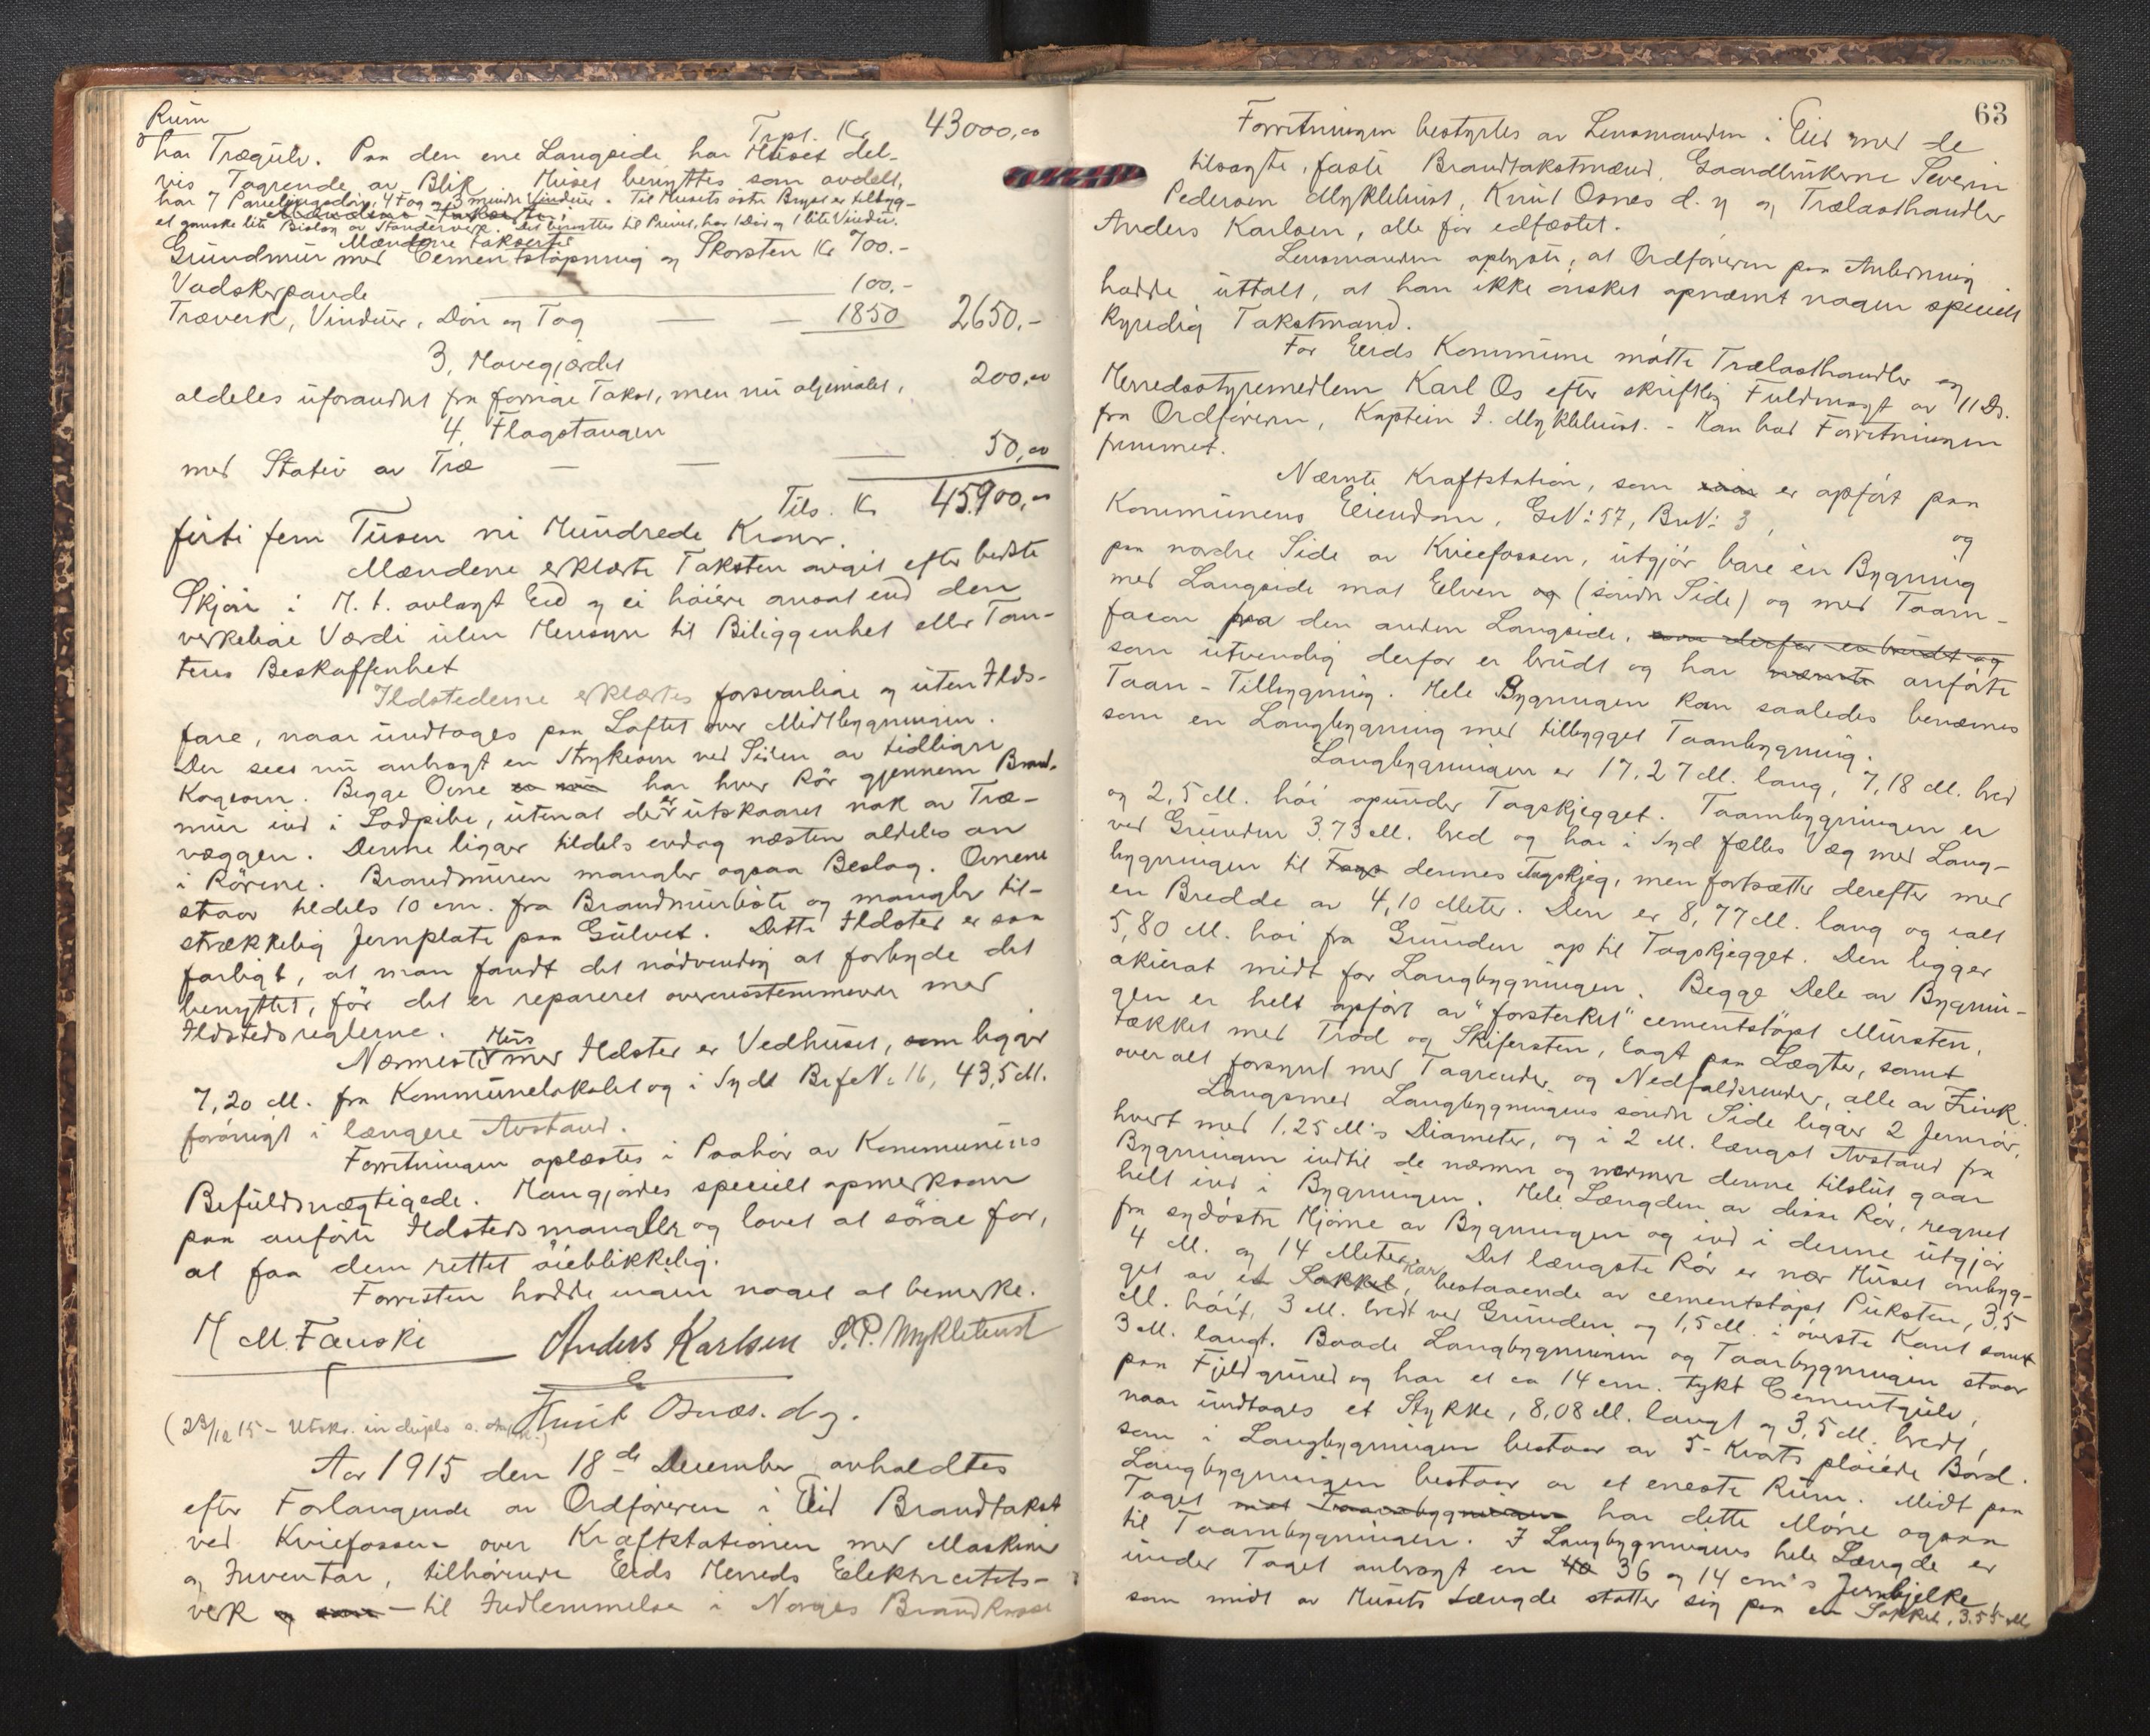 Rum
Trpt. Kr 43000,00
har Trægulv. Paa den ene Langside har Huset del-
vis Tagrende av Blik. Huset benyttes som avdelt,
har 7 Panelingsdør, 4 Fag og 3 mindre Vinduer. Til Husets østre Bryst er tilbyg-
et ganske lite Bislag av Stenderverk. Det benyttes til Privet, har 1 Dør og 1 lite Vindu.
Mændene takserte
Grundmur med Cementstøpning og Skorsten Kr 700.-
Vadskepande 100.-
Træverk, Vinduer, Dør og Tag — — 1850 2650.-
3, Havegjærdet
aldeles uforandret fra forrige Takst, men nu oljemalet, 200,00
4, Flagstangen
med Stativ av Træ — — — 50,00
Tils. Kr 45900,00
firti fem Tusen ni Hundrede Kroner.
Mændene erklærte Taksten avgit efter bedste
Skjøn i H. t. avlagt Eed og ei høiere ansat end den
verkelige Værdi uten Hensyn til Beliggenhet eller Tom-
tens Beskaffenhet
Ildstederne erklærtes forsvarlige og uten Ilds-
fare, naar undtages paa Loftet over Midtbygningen.
Der sees nu anbragt en Strykeovn ved Siden av tidligere
Kogeovn. Begge Ovne en nu har hver Rør gjennem Brand-
mur ind i Lodpibe, uten at der er utskaaret nok av Træ-
væggen. Denne ligger tildels endog næsten aldeles an
i Rørene. Brandmuren mangler ogsaa Beslag. Ovnene
staar tildels 10 cm. fra Brandmurløse og mangler til-
strækkelig Jernplate paa Gulvet. Dette Ildsted er saa
farligt, at man fandt det nødvendig at forbyde det
benyttet, før det er repareret overensstemmende med
Ildstedsreglerne.
Nærmeste Hus med Ildsted er Vedhuset, som ligger
7,20 M. fra Kommunelokalet og i Syd Brfe№ 16, 43,5 M.
forøvrigt i længere Avstand.
Forretningen oplæstes i Paahør av Kommunens
Befuldmægtigede. Han gjordes specielt opmerksom
paa anførte Ildstedsmangler og lovet at sørge for,
at faa dem rettet øieblikkelig.
Forresten hadde ingen noget at bemerke.
H M. Fænski Anders Karlsen S. P. Myklebust
Knut Osnæs. d. y.
(23/12 15 – Utskr. in duplo s.
Aar 1915 den 18de December avholdtes
efter Forlangende av Ordføreren i Eid Brandtakst
ved Kviefossen over Kraftstationen med Maskiner
og Inventar, tilhørende Eids Herreds Elektricitets-
verk og som – til Indlemmelse i Norges Brandkasse
63
Forretningen bestyrtes av Lensmanden i Eid med de
tilsagte, faste Brandtakstmænd, Gaardbrukerne Severin
Pedersen Myklebust, Knut Osnes d. y og Trælasthandler
Anders Karlsen, alle før edfæstet.
Lensmanden oplyste, at Ordføreren paa Anledning
hadde uttalt, at han ikke ønsket opnævnt nogen speciell
kyndig Takstmand.
For Eids Kommune møtte Trælasthandler og
Herredsstyremedlem Karl Os efter skriftlig Fuldmagt av 11 Ds.
fra Ordføreren, Kaptein J. Myklebust. – Han bad Forretningen
fremmet.
Nævnte Kraftstation, som er opført paa
Kommunens Eiendom, G№ 57, Br№ 3, og
paa nordre Side av Kviefossen, utgjør bare èn Bygning
med Langside mot Elven og (søndre Side) og med Taarn-
facon paa den anden Langside, som derfor er brudt og
som utvendig derfor er brudt og har nævnte anførte
Taarn-Tilbygning. Hele Bygningen kan saaledes benævnes
som en Langbygning med tilbygget Taarnbygning.
Langbygningen er 17.27 M. lang, 7,18 M. bred
og 2,5 M. høi opunder Tagskjegget. Taarnbygningen er
ved Grunden 3.73 M. bred og har i Syd fælles Væg med Lang-
bygningen til Tags dennes Tagskjeg, men fortsætter derefter med
en Bredde av 4,10 Meter. Den er 8,77 M. lang og ialt
5,80 M. høi fra Grunden op til Tagskjegget. Den ligger
akurat midt for Langbygningen. Begge Dele av Bygnin-
gen er helt opført av "forsterket" cementstøpt Mursten,
tækket med Traad og Skifersten, lagt paa Lægter, samt
overalt forsynt med Tagrender og Nedfaldsrender, alle av Zink.
Langsmed Langbygningens søndre Side ligger 2 Jernrør,
hvert med 1.25 M's Diameter, og i 2 M. længst Avstand fra
Bygningen indtil de nærmer og nærmer denne tilslut gaar
helt ind i Bygningen. Hele Længden av disse Rør, regnet
fra sydøstre Hjørne av Bygningen og ind i denne utgjør
4 M. og 14 Meter. Det længste Rør er nær Huset ombyg-
get av et Sokkel, Kar bestaaende av cementstøpt Puksten, 3,5
M. høit, 3 M. bredt ved Grunden og 1,5 M. i øverste Kant samt
3 M. langt. Baade Langbygningen og Taarnbygningen staar
paa Fjeldgrund og har et ca 14 cm. tykt Cementgulv,
naar undtages et Stykke, 8,08 M. langt og 3,5 M. bredt,
som i Langbygningen bestaar av 5-Kvarts pløiede Bord.
Langbygningen bestaar av et eneste Rum. Midt paa
Taget mot Taarnbygningen har dette Møne ogsaa
til Taarnbygningen. I Langbygningens hele Længde er
under Taget anbragt en 40 36 og 14 cm's Jernbjelke,
som midt av Husets Længde støtter sig paa en Sokkel, 3.55 M.